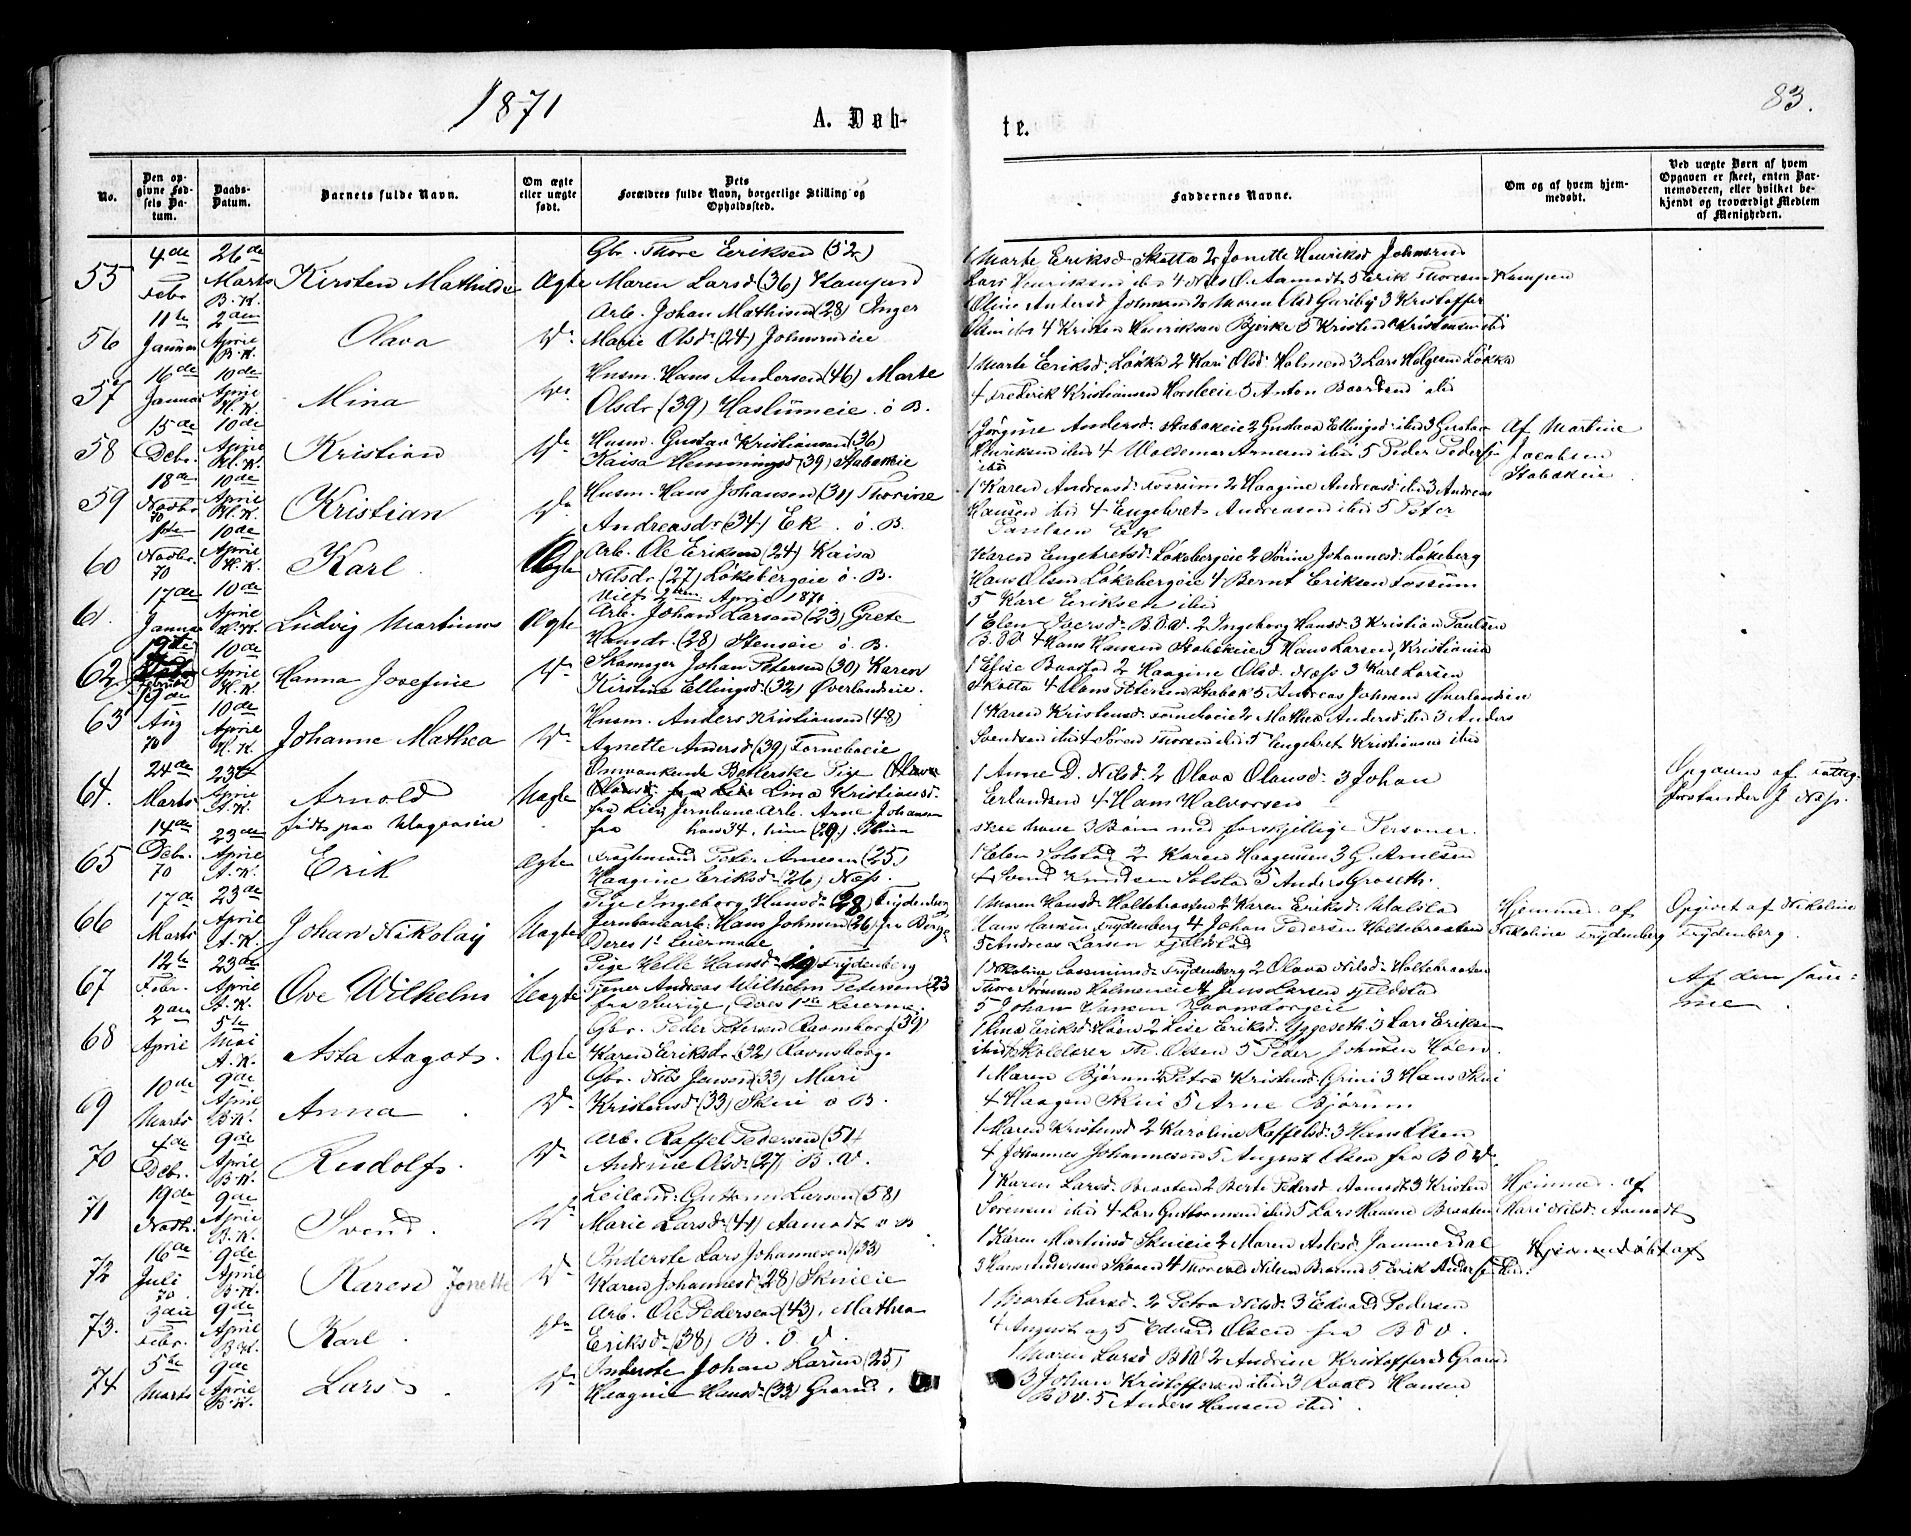 1871
A. Døb-
te.
83.
No.
Den op-
givne Fød-
sels Da-
tum.
Daabs-
Datum.
Barnets fulde Navn.
Om ægte
eller uægte
født.
Dets
Forældres fulde Navn, borgerlige Stilling og
Opholdssted.
Faddernes Navne.
Om og af hvem hjem-
medøbt.
Ved uægte Børn af hvem
Opgaven er skeet, enten Bar-
nemoderen, eller hvilket be-
kjendt og troværdigt Medlem
af Menigheden.
55 4de Febr 26de Marts B. K. Kirsten Mathilde Ægte
Gbr. Thore Eriksen (52)
Maren Larsd (36)
1 Marte Eriksd Skotta 2 Jonette Henriksd Johnsrud
Lars Henriksen ibd 4 Nils O. Aamodt 5 Erik Thoresen Kampen
56 11te Januar 2den April B. K. Olava Do
Arb. Johan Mathisen (28) Inger
Marie Olsdr (24) Johnsrudeie
Oline Andersd Johnsrud 2 Maren Olsd Guriby 3 Kristoffer
4 Kristen Henriksen Bjerke 5 Kristen Kristensen ibd
57 16de Januar 10de April H. K. Mina Do
Husm. Hans Andersen (46) Marte
Olsdr (39) Haslumeie ö B.
1 Marte Eriksd Løkka 2 Kari Olsd Holmen 3 Lars Holgersen Løkka
4 Fredrik Kristiansen Horsleeie 5 Anton Baarsrud ibd
58 15de Debr. 10de April Kl. K. Kristian Do
Husm. Gustav Kristiansen (36)
Kaisa Hemmingsd (39) Stabækeie
1 Jørgine Andersd Stabækeie 2 Gustava Ellingsd ibd 3 Gustav
Henriksen ibid 4 Woldemar Arnesen ibd 5 Peder Peders
ibd
Af Martine
Jacobsen
Stabækeie
59 18de Novbr. 70 10de April Kl. K. Kristian Do
Husm. Hans Johansen (31) Thorine
Andreasdr (34) Ek. ö. B.
1 Karen Andreasd Fossum 2 Haagine Andreasd ibd 3 Andreas
Hansen ibid 4 Engebret Andreasen ibid 5 Peter
Paulsen Ek
60 Novbr. 70 10de April H. K. Karl. Ægte
Arb. Ole Eriksen (24) Kaisa
Nilsdr (27) Løkebergeie ö. B.
Viet 2den April 1871
Karen Engebretsd Løkebergeie 2 Sørine Johannesd Løkeberg
Hans Olsen Løkebergeie 4 Bernt Eriksen Fossum
5 Karl Eriksen ibid
61. 17de Januar 10de April H. K. Ludvig Martinus Ægte
Arb. Johan Larsen (23) Grete
Hansdr (28) Stenseie ö. B.
1 Elen Iversd B.ö.V. 2 Ingeborg Hansd 3 Kristian Paulsen
B.ö.V 4 Hans Hansen Stabækeie 5 Hans Larsen, Kristiania
62 19de 10de April H. K. Hanna Josefine Do
Skomager Johan Petersen (30) Karen
Kirstine Ellingsd (32) Øverlandeie.
1 Elise Baastad 2 Haagine Olsd Næss 3 Karl Larsen
Skotta 4 Hans Petersen Stabæk 5 Andreas Johnsen Øverlandeie
63 19de Aug 70 10de April H. K. Johanne Mathea Do
Husm. Anders Kristiansen (48)
Agnette Andersd (39) Forneboeie
1 Karen Kristensd Forneboeie 2 Mathea Andersd ibd 3 Anders
Svendsen ibd 4 Søren Thoresen ibd 5 Engebret Kristiansen ibid
64. 24de Marts 23de April A. K. Arnold Uægte
født paa Vlagaaseie
Omvankende Betlerske Pige
Lina Kristiansd
fra Lier, Jernbane arb. Arne Johansen
fra hans 34, hun (29).
1 Anne D. Nilsd 2 Olava Olausd 3 Johan
Erlandsen 4 Hans Halvorsen
skal have 3 Børn med forskjellige Personer.
Opgaven af Fattig-
forstander J Næss.
65 14de Debr. 70 23de April A. K. Erik Ægte
Fragtmand Peter Arnesen (25)
Haagine Eriksd (26) Næss.
1 Elen Solstad 2 Karen Haagensen 3 G. Arnesen
4 Svend Knudsen Solstad 5 Anders Groseth.
66 17de Marts 23de April A. K. Johan Nikolay Uægte
Pige Ingeborg Hansd (28 Frydenberg
Jernbanearb. Hans Johnsen (26) fra Borge
Deres 1ste Leiermaal
1 Maren Hansd Holtebraaten 2 Karen Eriksd Valstad
Hans Hansen Frydenberg 4 Johan Pedersen Holtebraaten
5 Andreas Larsen Fjeldstad
Hjemmed. af
Nikoline Frydenberg
Opgivet af Nikoline
Frydenberg.
67 12te Febr. 23de April A. K. Ove Wilhelm Uægte
Pige Helle Hansd 19 Frydenberg
Tjener Andreas Wilhelm Pedersen (23
fra Sverige, Deres 1ste Leierm.
1 Nikoline Rasmusd Frydenberg 2 Olava Nilsd Holtebraaten
Thore Sørensen Holmeneie 4 Jens Larsen Fjeldstad
5 Johan Hansen Ravnsborgeie
Af den sam-
me.
68 2den April 5te Mai A. K. Asta Aagot. Ægte
Gbr. Peder Petersen Ravnsborg 39)
Karen Eriksdr (32) Ravnsborg.
1 Lina Eriksd Høen 2 Lise Eriksd Yggeseth 3 Lars Eriksen
ibid 4 Skolelærer Olsen 5 Peder Johnsen Høen.
69 10de Marts 9de April B. K. Anna. Do
Gbr. Nils Jensen (33) Mari
Kristensd (33) Skui ö B.
1 Maren Bjørum 2 Petra Kristensd Grini 3 Hans Skui
4 Haagen Skui 5 Arne Bjørum
70 4de Debr. 9de April B. K. Rudolf. Do
Arb. Raffel Pedersen (51)
Andrine Olsdr (27) B. V.
1 Maren Kristensd 2 Karoline Raffelsd 3 Hans Olsen
4 Johannes Johannesen 5 August Olsen fra B ö V.
71 19de Novbr. 9de April B. K. Svend. Do
Leiland. Guttorm Larsen (58)
Marie Larsd (41) Aamodt ö B
1 Karen Larsd Braaten 2 Berte Pedersd Aamodt 3 Kristen
Sørensen ibid 4 Lars Guttormsen ibid 5 Lars Hansen Braaten
Hjemmed. af
Mari Nilsd Aamodt
72 16de Juli 70 9de April B. K. Karen Jonette Do
Inderste Lars Johannesen (33)
Karen Johannesd (28) Skuieie
1 Karen Martinsd Skuieie 2 Maren Aslesd Jammerdal
3 Hans Andersen Skaaren 4 Thorvald Nilsen Brænna 5 Erik Anders ibid.
Hjemmedøbt af
73. 3die Febr. 9de April B. K. Karl. Do
Arb. Ole Pedersen (43). Mathea
Eriksd (38) B. ö V.
1 Marte Larsd 2 Petra Nilsd 3 Edvard Pedersen
4 August og 5 Edvard Olsen fra B ö V.
74 5te Marts 9de April B. K. Lars. Do
Inderste Johan Larsen (25)
Haagine Hansd (33) Grorud.
1 Maren Larsd B ö V 2 Andrine Kristoffersd Grorud
3 Johan Kristoffersen ibid 3 Roald Hansen
B ö V. 5 Anders Hansen ibid.